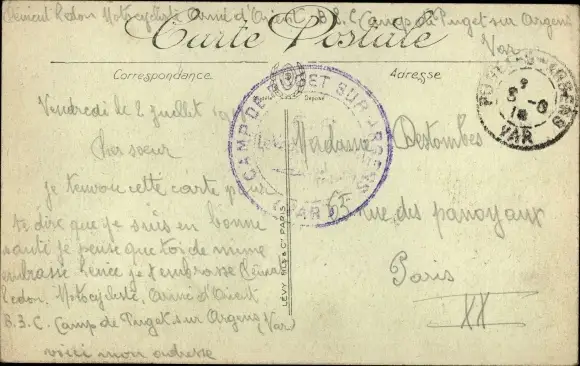 Motocycliste Armé d'Orient B.3.C Camp de Puget sur Argens
Var
Carte Postale
Correspondance
Adresse
Vendredi le 2 juillet 19
Cher soeur
je tenvoi cette carte pour
te dire que je suis en bonne
santé je pense que toi de mime
embrasse renée je t'embrasse Clément
Ledon. Motocycliste, Armé d'Orient
B.3.C. Camp de Puget sur Argens (Var)
voici mon adresse
CAMP DE PUGET SUR ARGENS
(VAR)
LÉVY FILS & Cie PARIS
Madame Destombes
63 rue des panoyaux
Paris
XX
PUGET-SUR-ARGENS
VAR